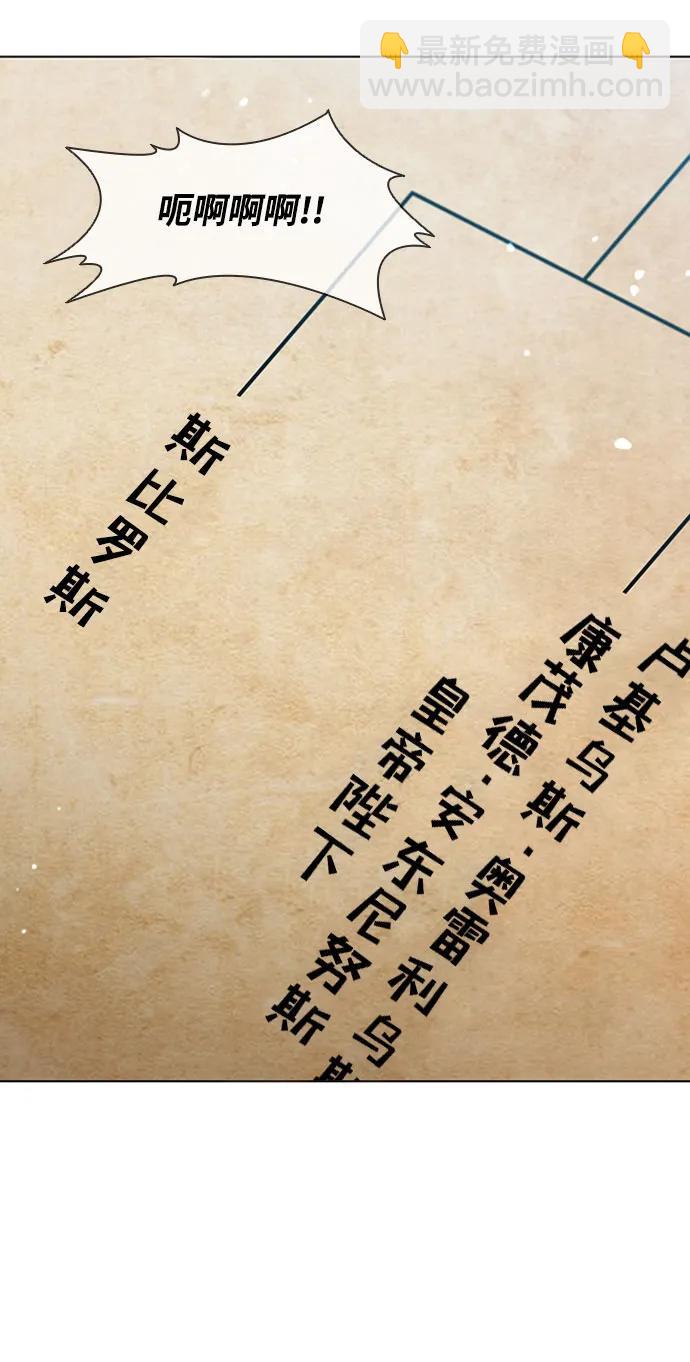 👇最新免费漫画👇
www.baozimh.com
呃啊啊啊!!
斯比罗斯
卢基乌斯·奥雷利乌斯
康茂德·安东尼努斯
皇帝陛下